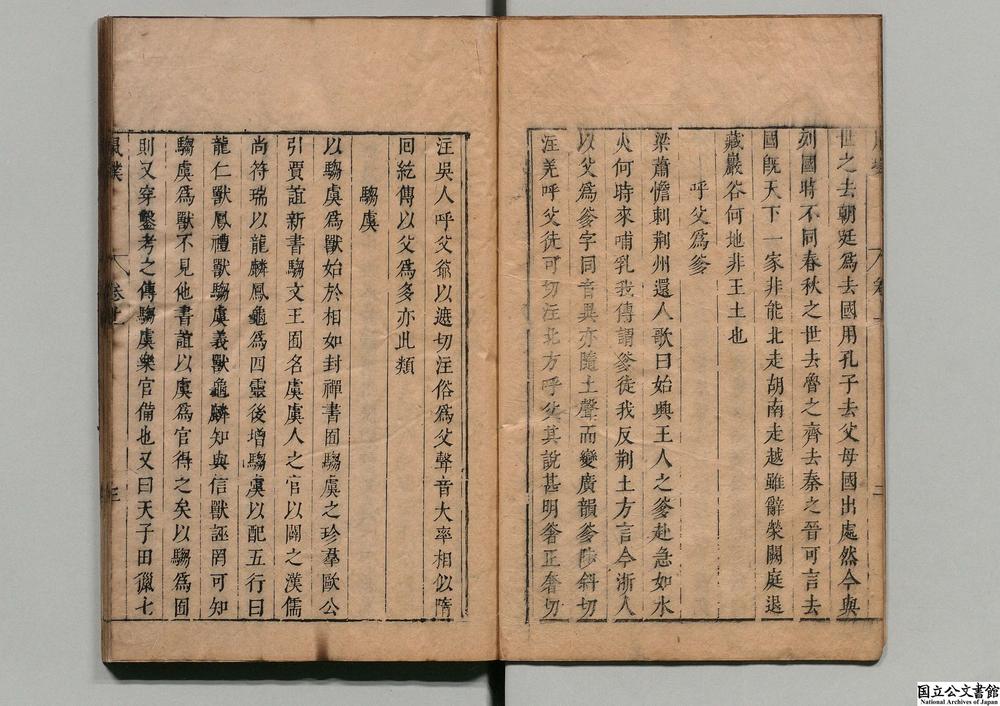 世之去朝廷爲去國用孔子去父母國出處然今與
列國時不同春秋之世去魯之齊去秦之晉可言去
國旣天下一家非能北走胡南走越雖辭榮闕庭退
藏巖谷何地非王土也
呼父爲爹
梁蕭憺刺荆州還人歌曰始興王人之爹赴急如水
火何時來哺乳我傳謂爹徒我反荆土方言今浙人
以父爲爹字同音異亦隨土聲而變廣韻爹陟斜切
注羌呼父徒可切注北方呼父其說甚明奢正奢切
注吳人呼父爺以遮切注俗爲父聲音大率相似隋
回紇傳以父爲多亦此類
騶虞
以騶虞爲獸始於相如封禪書囿騶虞之珍羣歐公
引賈誼新書騶文王囿名虞虞人之官以闢之漢儒
尚符瑞以龍麟鳳龜爲四靈後增騶虞以配五行曰
龍仁獸鳳禮獸騶虞義獸龜麟知與信獸誣罔可知
騶虞爲獸不見他書誼以虞爲官得之矣以騶爲囿
則又穿鑿考之傳騶虞樂官備也又曰天子田獵七
卷廿
三
国立公文書館
National Archives of Japan